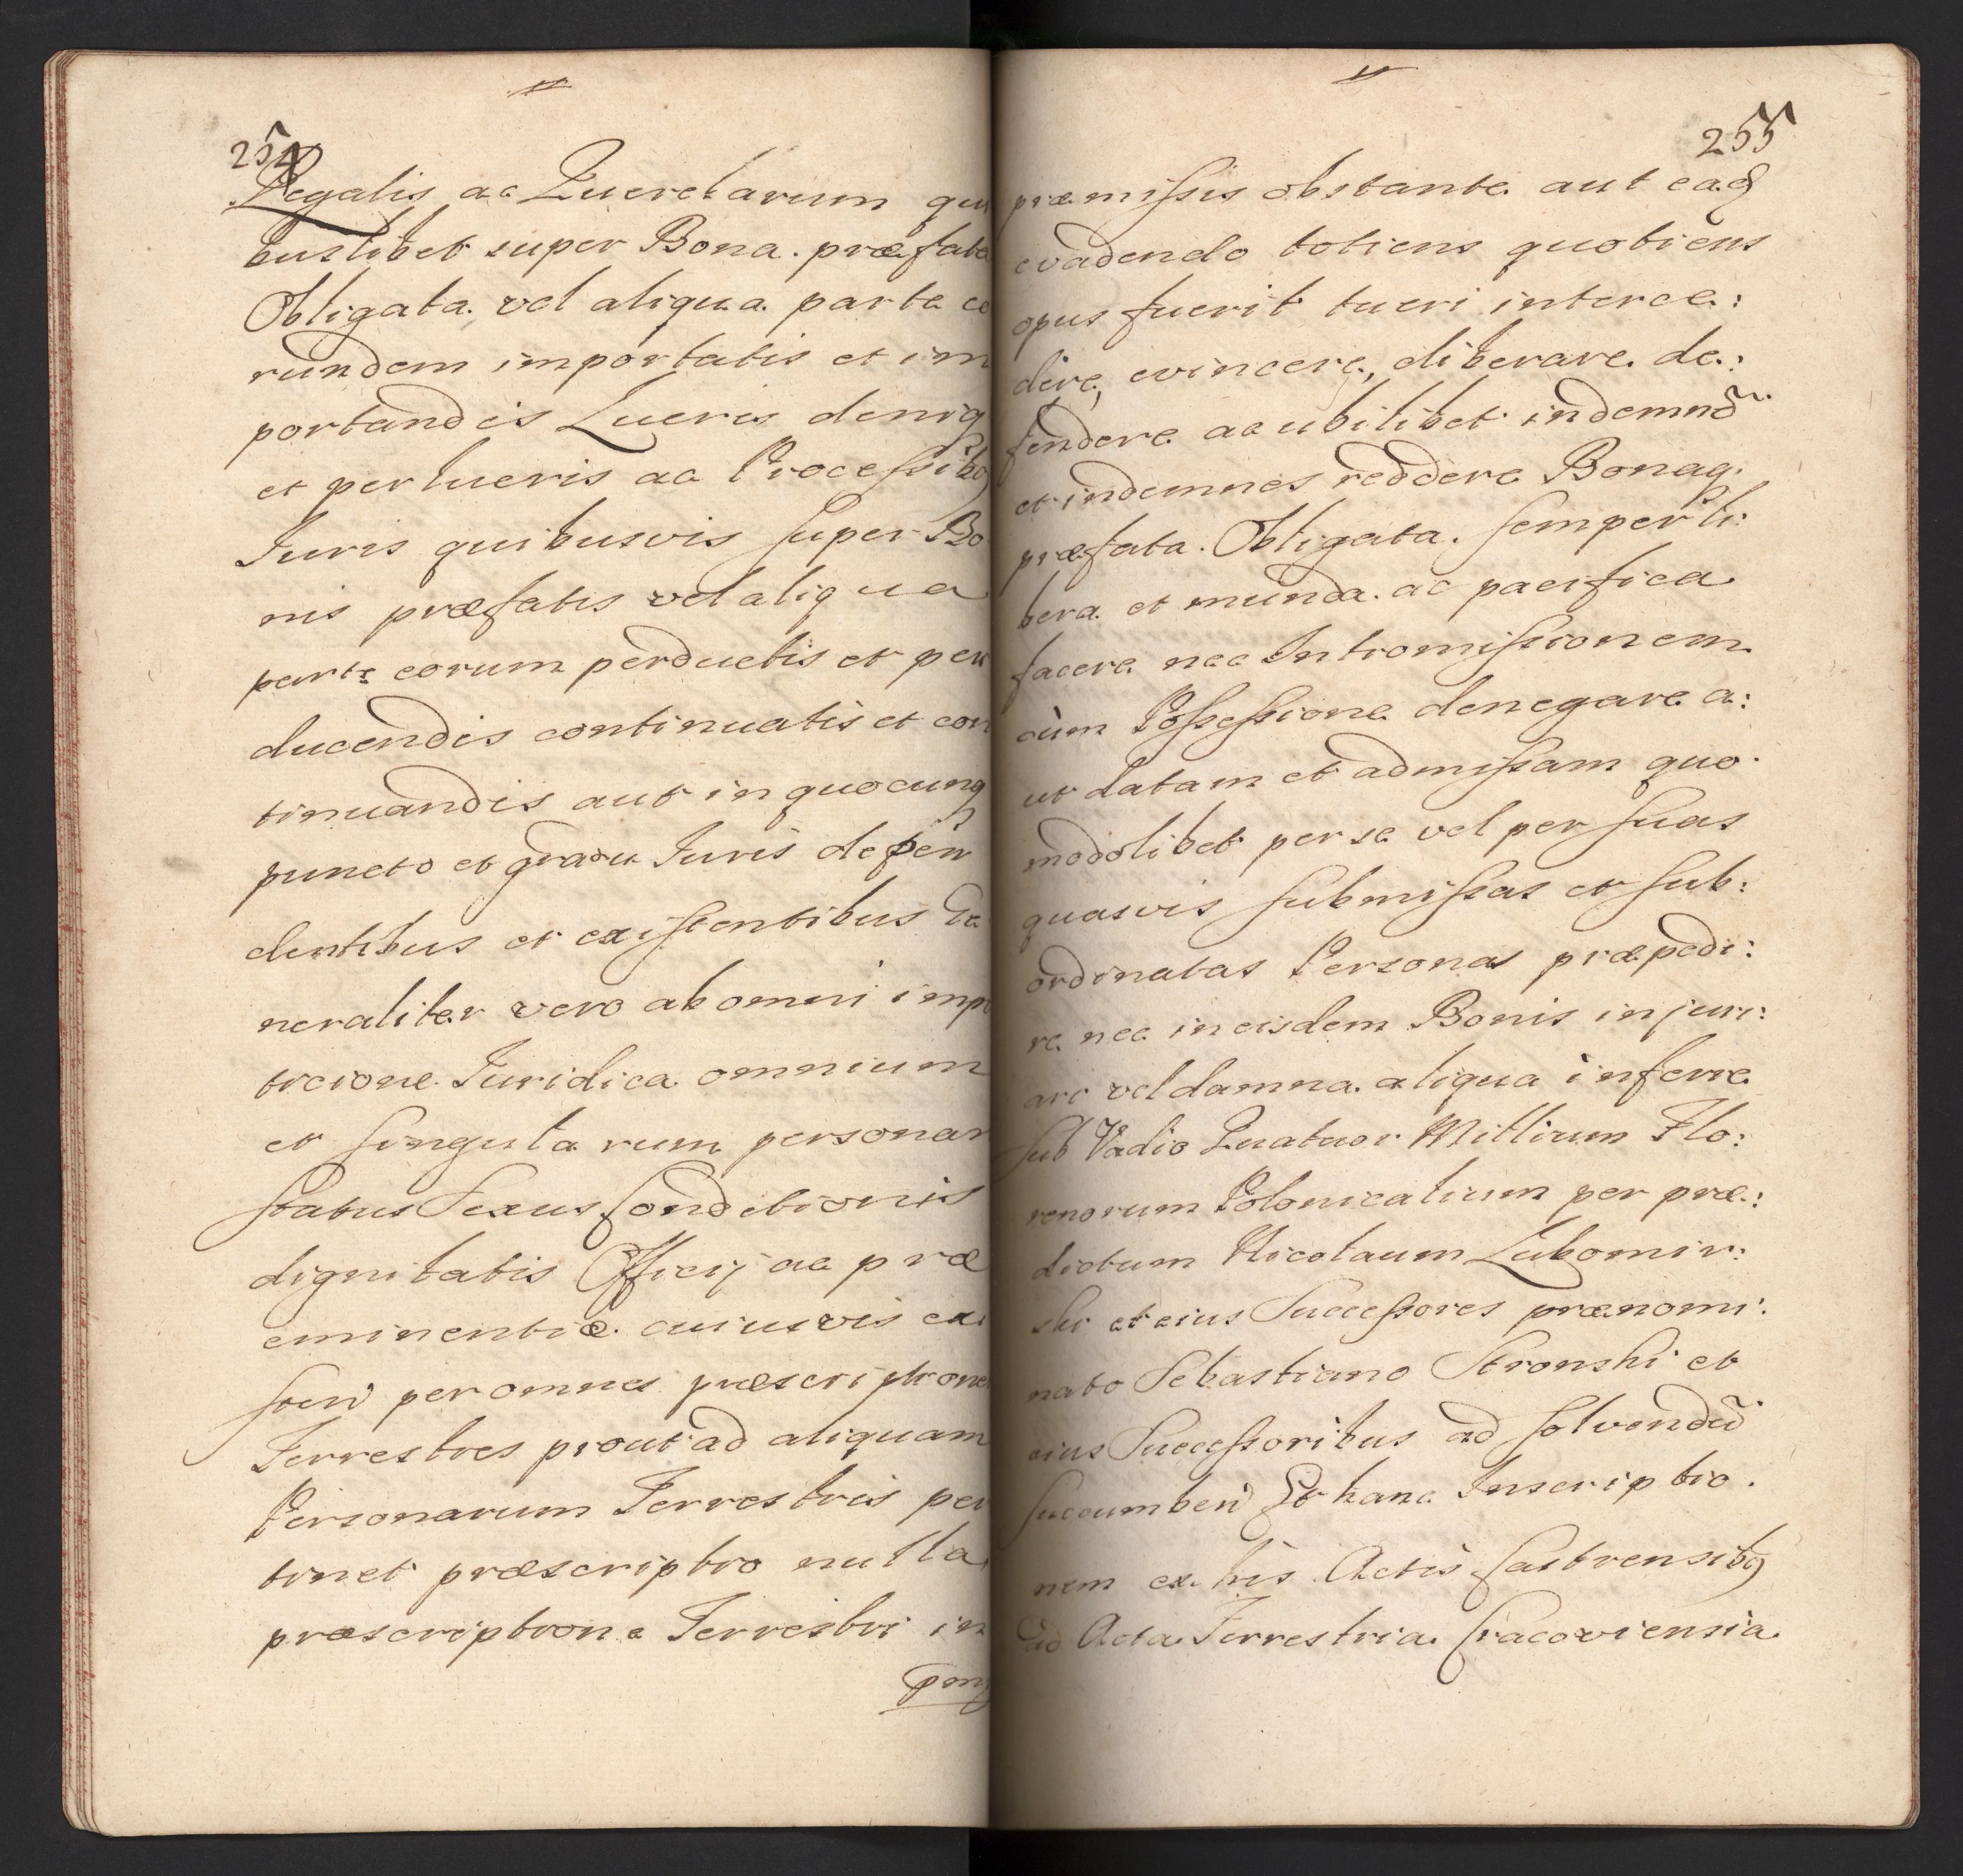 254
Regalis ac Querelarum qui
buslibet super Bona. præfata
Obligata. vel aliqua. parte eo
rundem importatis et im
portandis Lucris deniq
et perlucris ac Processibq
Iuris quibusvis super Bo
nis præfatis vel aliqua
parte eorum perductis et per
ducendis continuatis et con
tinuandis aut in quocunq
puncto et gradu Iuris depen
dentibus et existentibus Ge
neraliter vero ab omni impe
ticione. Iuridica. omnium
et singularum personar
status Sexus Conditionis
dignitatis Officij ac præ
eminentiæ. cuiusvis exi
sten per omnes præscriptione
Terrestres prout ad aliquam
Personarum Terrestris per
tinet præscriptio nulla
præscriptione Terrestri in
pmi
255
præmissis obstante aut eaq
evadendo totiens quotiens
opus fuerit tueri interce:
dere, evincere, liberare de:
fendere ac ubilibet indemnẽ
et indemnes reddere Bonaq.
præfata. Obligata. semper li:
bera. et munda. ac pacifica
facere nec Intromissionem
cùm Possessione denegare a:
ut datam et admissam quo:
modolibet per se vel per suas
quasvis submissas et sub:
ordinatas Personas præpedi:
re nec in eisdem Bonis injuri:
ari vel damna. aliqua inferre
sub Vadio Quatuor Millium Flo:
renorum Polonicalium per præ:
dictum Nicolaum Lubomir:
ski et eius Successores prænomi:
nato Sebastiano Stronski et
eius Successoribus ad solvendũ
succumben Et hanc Inscriptio.
nem ex his Actis Castrensibq
ad Acta Terrestria Cracoviensia.